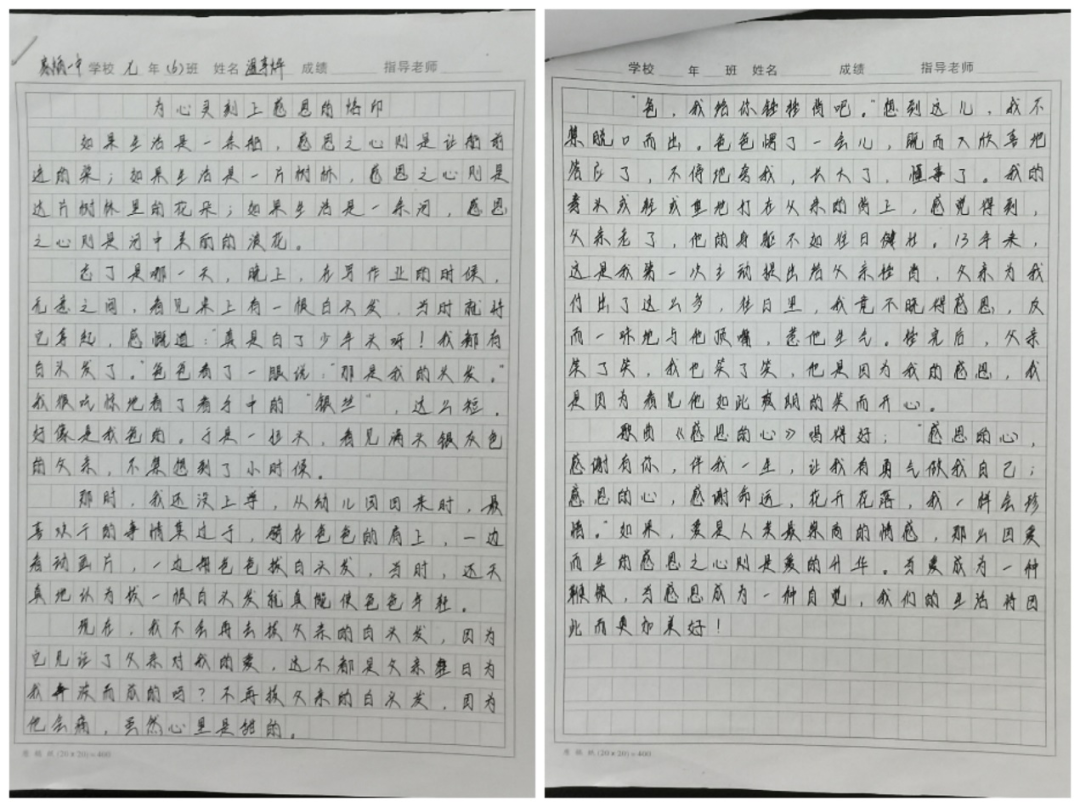 学校 九 年 (6) 班 姓名 成绩 指导老师
为心灵刻上感恩的烙印
如果生活是一条船，感恩之心则是让船前
进的桨；如果生活是一片树林，感恩之心则是
这片树林里的花朵；如果生活是一条河，感恩
之心则是河中美丽的浪花。
忘了是哪一天，晚上，在写作业的时候，
无意之间，看见桌上有一根白头发，当时就将
它拿起，感慨道：“真是白了少年头呀！我都有
白头发了。”爸爸看了一眼说：“那是我的头发。”
我狠吃惊地看了看手中的“银丝”，这么短，
好像是我爸的。于是一抬头，看见满头银灰色
的父亲，不禁想到了小时候。
那时，我还没上学，从幼儿园回来时，最
喜欢干的事情莫过于，骑在爸爸的肩上，一边
看动画片，一边帮爸爸拔白头发，当时，还天
真地认为拔一根白头发就真能使爸爸年轻。
现在，我不会再去拔父亲的白头发，因为
它见证了父亲对我的爱，这不都是父亲整日为
我奔波而成的吗？不再拔父亲的白头发，因为
他会痛，虽然心里是甜的。
(20×20)=400
学校 年 班 姓名 成绩 指导老师
“爸，我给你锤锤肩吧。”想到这儿，我不
禁脱口而出。爸爸愣了一会儿，既而大欣喜地
答应了，不停地夸我，长大了，懂事了。我的
拳头或轻或重地打在父亲的肩上，感觉得到，
父亲老了，他的身躯不如往日健壮。13年来，
这是我第一次主动提出给父亲锤肩，父亲为我
付出了这么多，往日里，我竟不晓得感恩，反
而一味地与他顶嘴，惹他生气。锤完后，父亲
笑了笑，我也笑了笑，他是因为我的感恩，我
是因为看见他如此爽朗的笑而开心。
歌曲《感恩的心》唱得好：“感恩的心，
感谢有你，伴我一生，让我有勇气做我自己；
感恩的心，感谢命运，花开花落，我一样会珍
惜。”如果，爱是人类最崇高的情感，那么因爱
而生的感恩之心则是爱的升华。当爱成为一种
鞭策，当感恩成为一种自觉，我们的生活将因
此而更加美好！
(20×20)=400